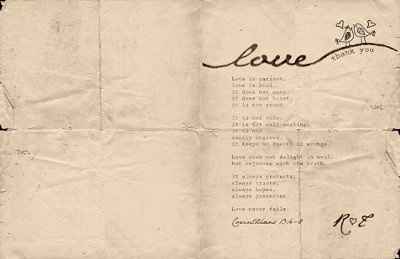 love
thank you
Love is patient,
love is kind.
It does not envy,
it does not boast,
it is not proud.
It is not rude,
it is not self-seeking,
it is not
easily angered,
it keeps no record of wrongs.
Love does not delight in evil
but rejoices with the truth.
It always protects,
always trusts,
always hopes,
always perseveres.
Love never fails.
Corinthians 13:4-8
R♥E